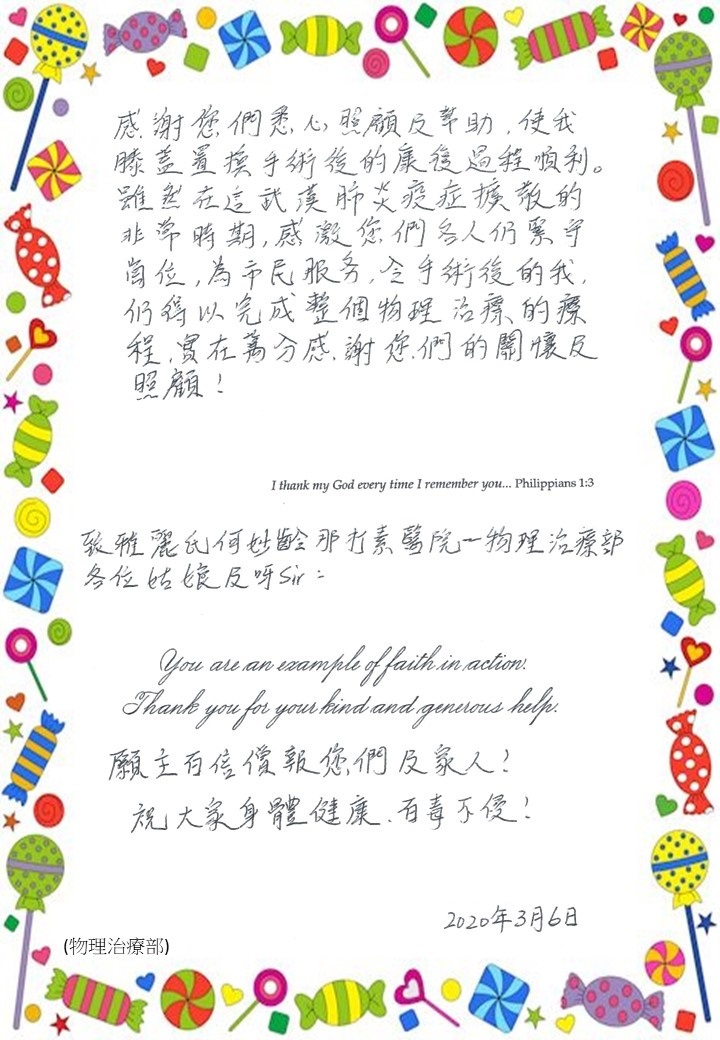 感謝您們悉心照顧及幫助，使我
膝蓋置換手術後的康復過程順利。
雖然在這武漢肺炎疫症擴散的
非常時期，感激您們各人仍緊守
崗位，為市民服務，令手術後的我，
仍得以完成整個物理治療的療
程，實在萬分感謝您們的關懷及
照顧！
I thank my God every time I remember you... Philippians 1:3
致雅麗氏何妙齡那打素醫院—物理治療部
各位姑娘及呀Sir：
You are an example of faith in action.
Thank you for your kind and generous help.
願主百倍償報您們及家人！
祝大家身體健康、百毒不侵！
2020年3月6日
(物理治療部)